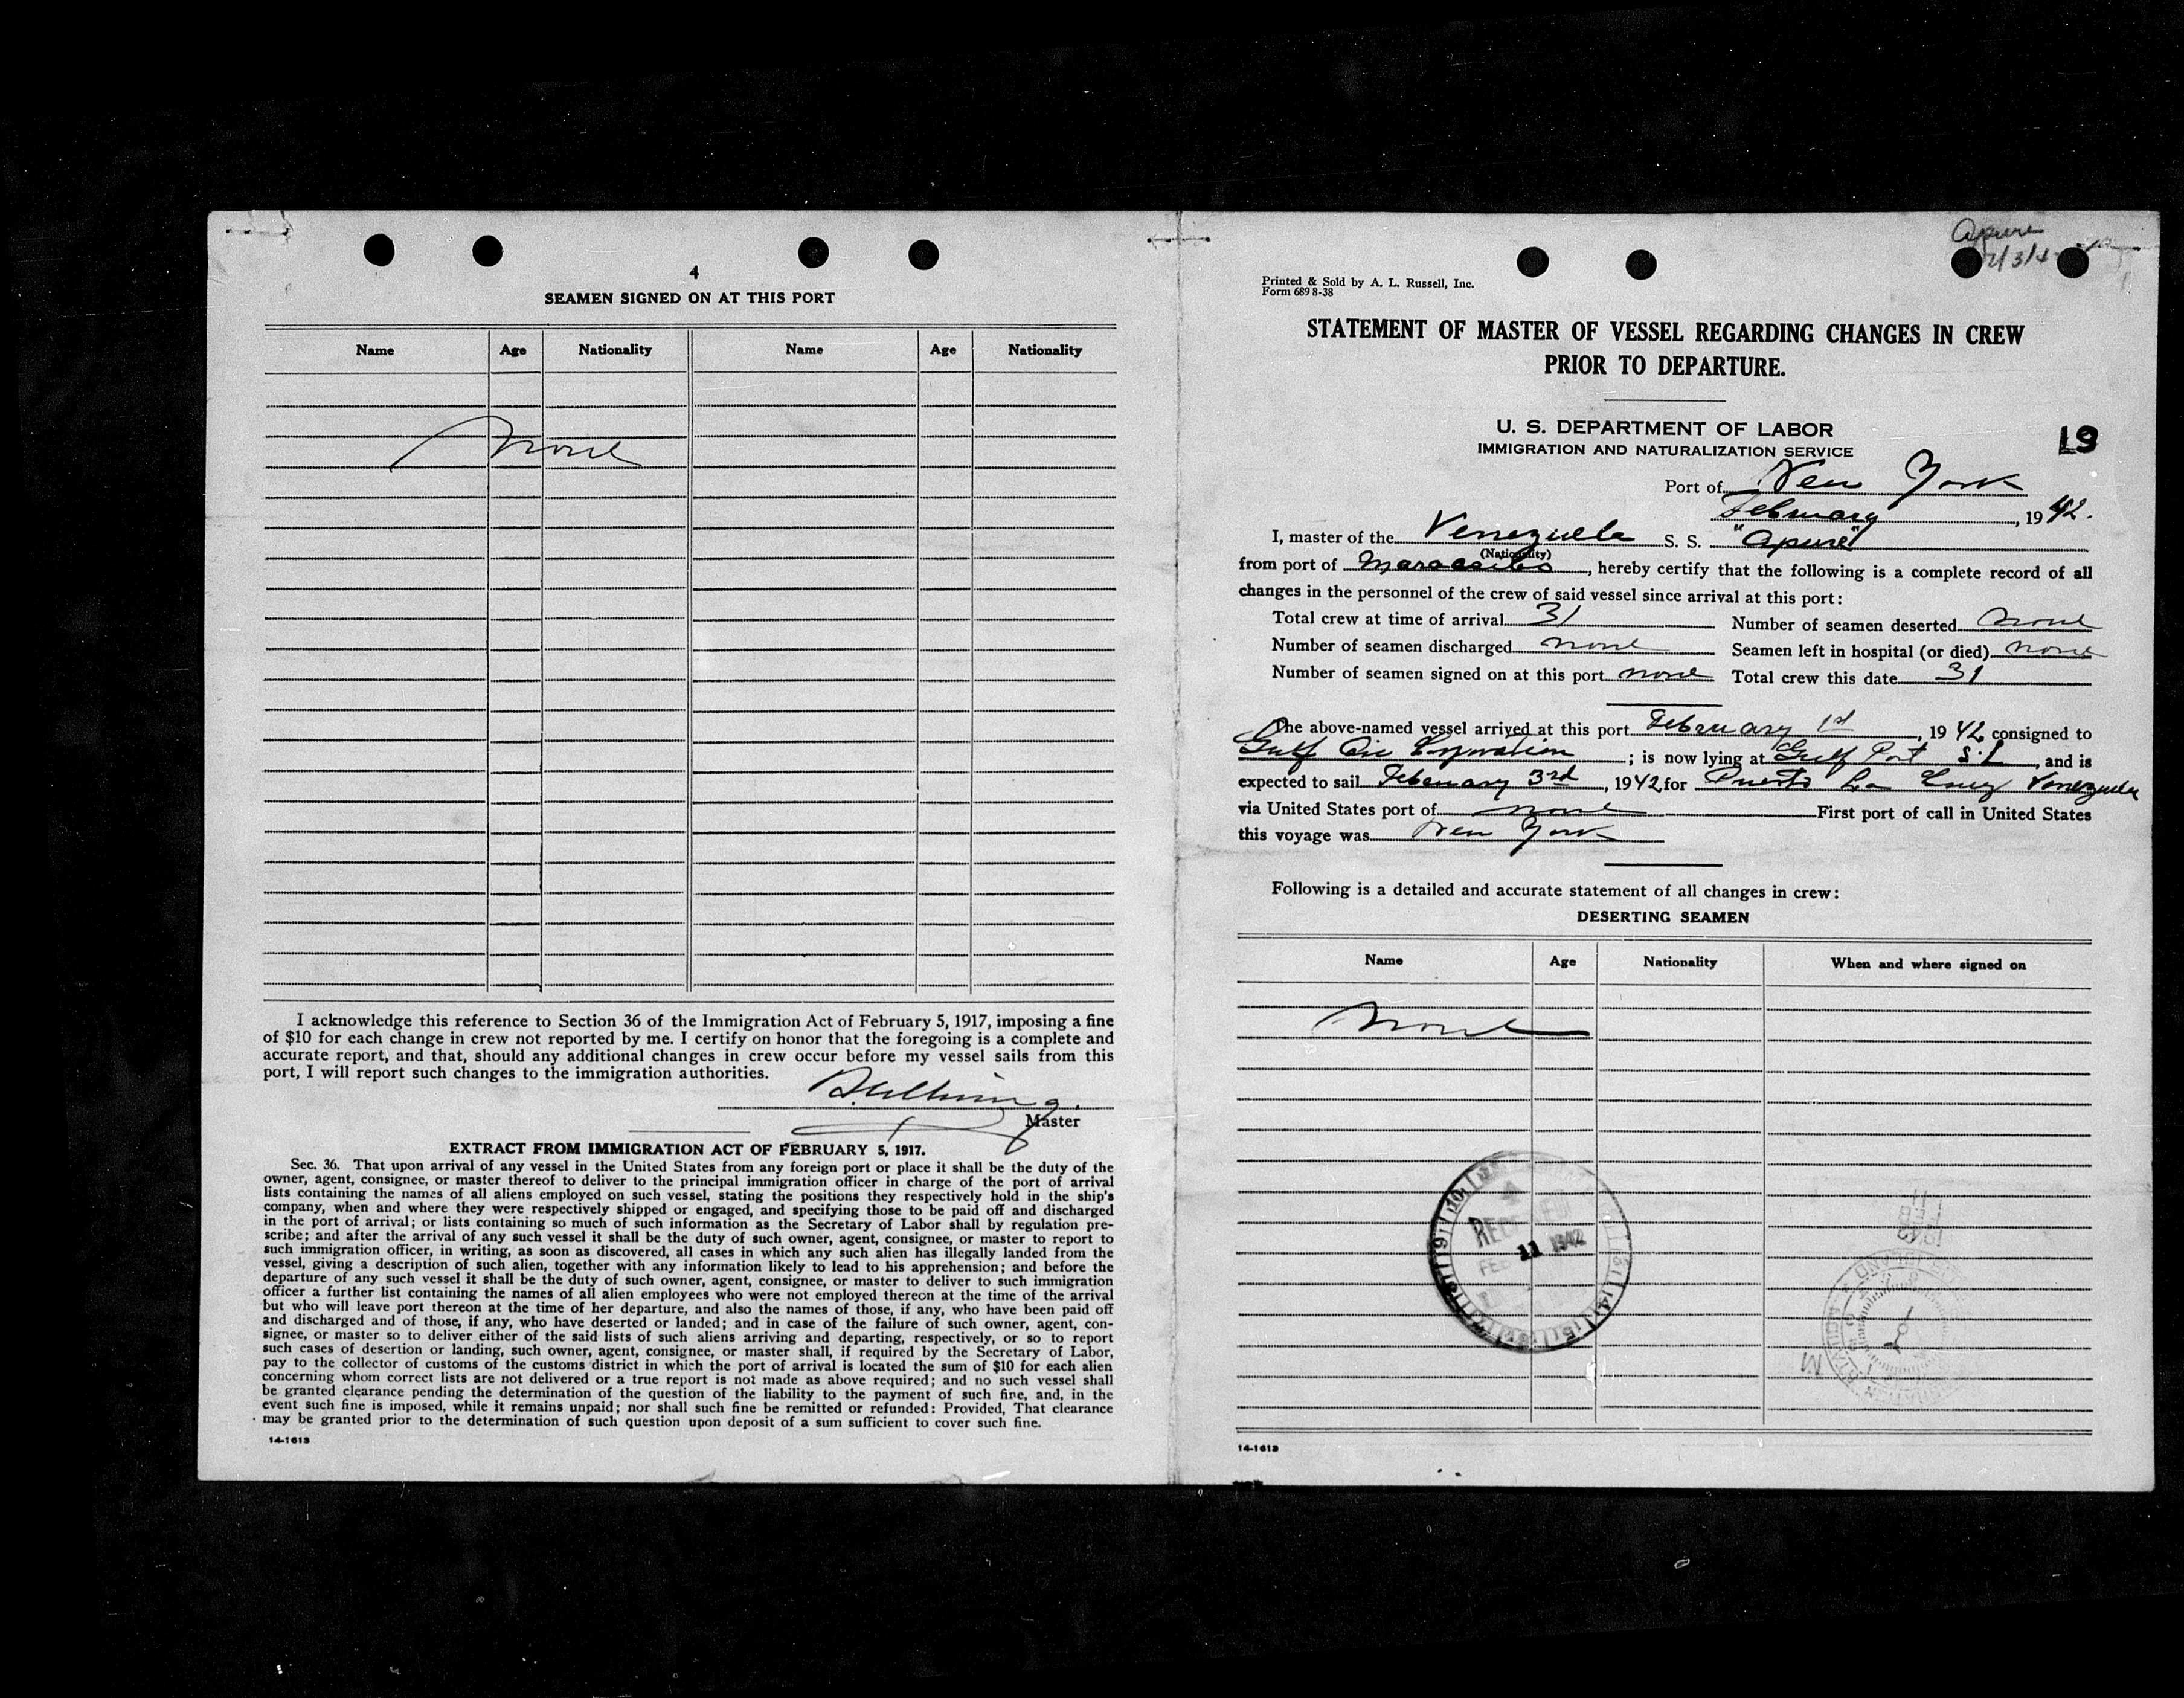 4
SEAMEN SIGNED ON AT THIS PORT
Name Age Nationality Name Age Nationality
None
I acknowledge this reference to Section 36 of the Immigration Act of February 5, 1917, imposing a fine
of $10 for each change in crew not reported by me. I certify on honor that the foregoing is a complete and
accurate report, and that, should any additional changes in crew occur before my vessel sails from this
port, I will report such changes to the immigration authorities.
Master
EXTRACT FROM IMMIGRATION ACT OF FEBRUARY 5, 1917.
Sec. 36. That upon arrival of any vessel in the United States from any foreign port or place it shall be the duty of the
owner, agent, consignee, or master thereof to deliver to the principal immigration officer in charge of the port of arrival
lists containing the names of all aliens employed on such vessel, stating the positions they respectively hold in the ship's
company, when and where they were respectively shipped or engaged, and specifying those to be paid off and discharged
in the port of arrival; or lists containing so much of such information as the Secretary of Labor shall by regulation pre-
scribe; and after the arrival of any such vessel it shall be the duty of such owner, agent, consignee, or master to report to
such immigration officer, in writing, as soon as discovered, all cases in which any such alien has illegally landed from the
vessel, giving a description of such alien, together with any information likely to lead to his apprehension; and before the
departure of any such vessel it shall be the duty of such owner, agent, consignee, or master to deliver to such immigration
officer a further list containing the names of all alien employees who were not employed thereon at the time of the arrival
but who will leave port thereon at the time of her departure, and also the names of those, if any, who have been paid off
and discharged and of those, if any, who have deserted or landed; and in case of the failure of such owner, agent, con-
signee, or master so to deliver either of the said lists of such aliens arriving and departing, respectively, or so to report
such cases of desertion or landing, such owner, agent, consignee, or master shall, if required by the Secretary of Labor,
pay to the collector of customs of the customs district in which the port of arrival is located the sum of $10 for each alien
concerning whom correct lists are not delivered or a true report is not made as above required; and no such vessel shall
be granted clearance pending the determination of the question of the liability to the payment of such fine, and, in the
event such fine is imposed, while it remains unpaid; nor shall such fine be remitted or refunded: Provided, That clearance
may be granted prior to the determination of such question upon deposit of a sum sufficient to cover such fine.
14-1613
Apure
2/3/4
Printed & Sold by A. L. Russell, Inc.
Form 689 8-38
STATEMENT OF MASTER OF VESSEL REGARDING CHANGES IN CREW
PRIOR TO DEPARTURE.
U. S. DEPARTMENT OF LABOR
IMMIGRATION AND NATURALIZATION SERVICE
19
Port of New York
February, 1942.
I, master of the Venezuela S. S. "Apure"
(Nationality)
from port of Maracaibo, hereby certify that the following is a complete record of all
changes in the personnel of the crew of said vessel since arrival at this port:
Total crew at time of arrival 31 Number of seamen deserted None
Number of seamen discharged none Seamen left in hospital (or died) none
Number of seamen signed on at this port none Total crew this date 31
The above-named vessel arrived at this port February 1st, 1942 consigned to
Gulf Oil Corporation; is now lying at Gulf Port S.I., and is
expected to sail February 3rd, 1942 for Puerto La Cruz Venezuela
via United States port of none First port of call in United States
this voyage was New York
Following is a detailed and accurate statement of all changes in crew:
DESERTING SEAMEN
Name Age Nationality When and where signed on
None
RECEIVED
FEB 11 1942
14-1613